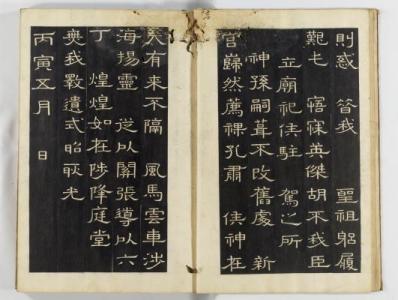 則惑 昔我 聖祖躬履
艱屯 寤寐英傑胡不我臣
立廟祀侯駐 駕之所
神孫嗣葺不改舊處 新
宮巋然薦祼孔肅 侯神在
天有來不隔 風馬雲車涉
海揚靈 從以關張導以六
丁 煌煌如在陟降庭堂
無我斁遺式昭耿光
丙寅五月 日